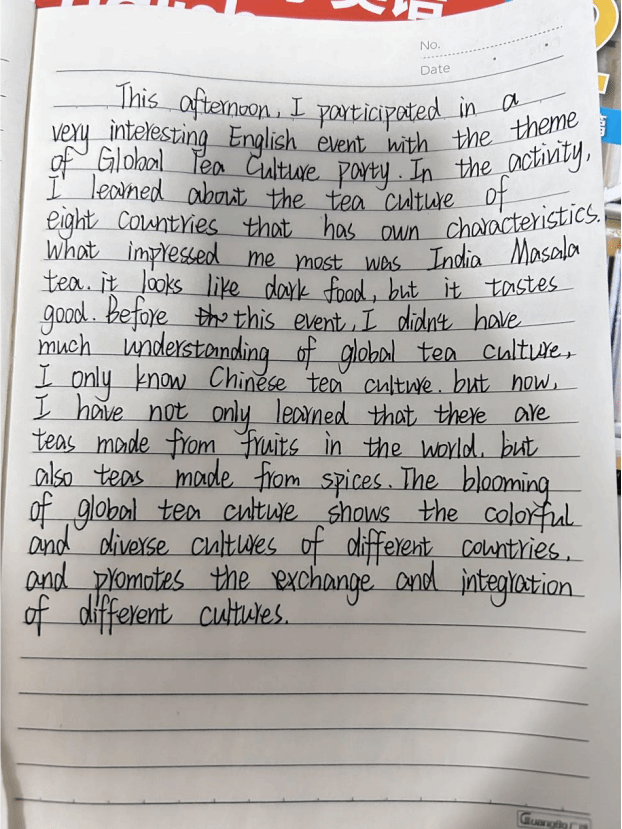 No.
Date
This afternoon, I participated in a
very interesting English event with the theme
of Global Tea Culture party. In the activity,
I learned about the tea culture of
eight countries that has own characteristics.
What impressed me most was India Masala
tea. it looks like dark food, but it tastes
good. Before the this event, I didn't have
much understanding of global tea culture,
I only know Chinese tea culture. but now,
I have not only learned that there are
teas made from fruits in the world, but
also teas made from spices. The blooming
of global tea culture shows the colorful
and diverse cultures of different countries,
and promotes the exchange and integration
of different cultures.
GuangBo